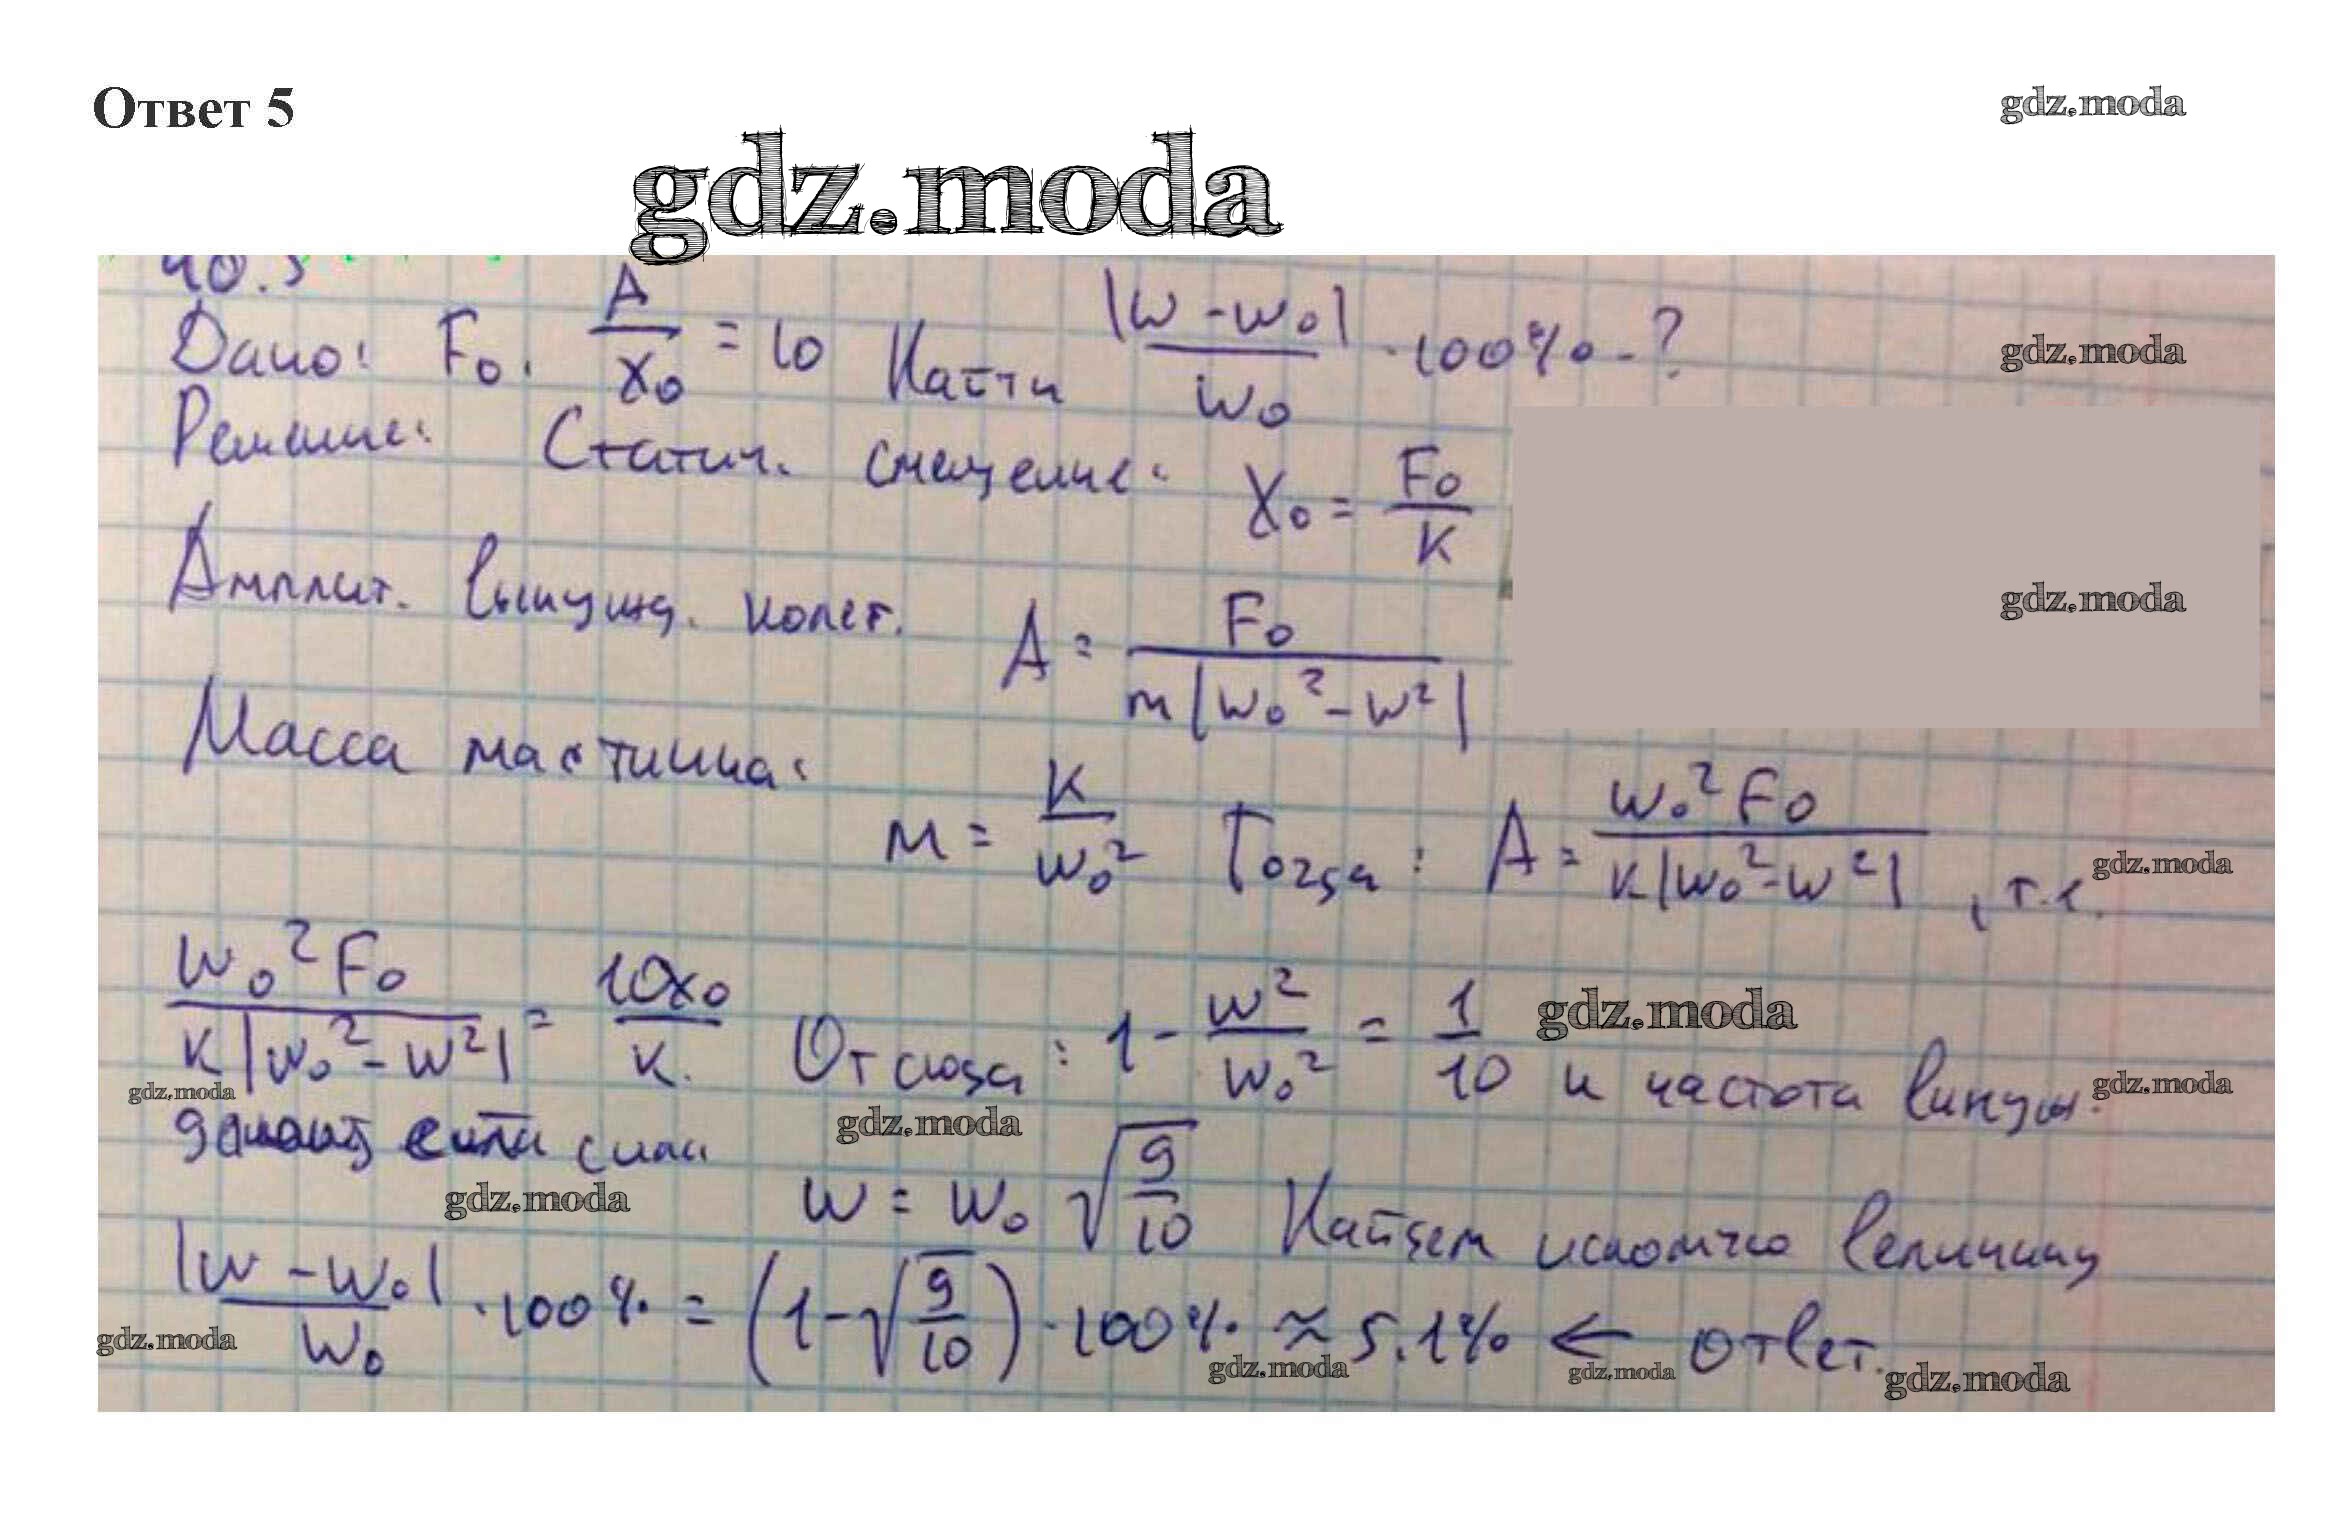 Ответ 5
gdz.moda
gdz.moda
40.5
Дано: F₀, A/x₀ = 10 Найти |w - w₀|/w₀ · 100% - ?
gdz.moda
Решение: Статич. смещение: X₀ = F₀/K
Амплит. вынужд. колеб. A = F₀/(m|w₀² - w²|)
gdz.moda
Масса маятника:
m = K/w₀² Тогда: A = w₀²F₀/(K|w₀² - w²|), т.е.
gdz.moda
w₀²F₀/(K|w₀² - w²|) = 10x₀/K. Отсюда: 1 - w²/w₀² = 1/10 и частота вынуж.
gdz.moda
gdz.moda
gdz.moda
gdz.moda
силы
gdz.moda
w = w₀ √(9/10) Найдем искомую величину
|w - w₀|/w₀ · 100% = (1 - √(9/10)) · 100% ≈ 5.1% ← ответ.
gdz.moda
gdz.moda
gdz.moda
gdz.moda